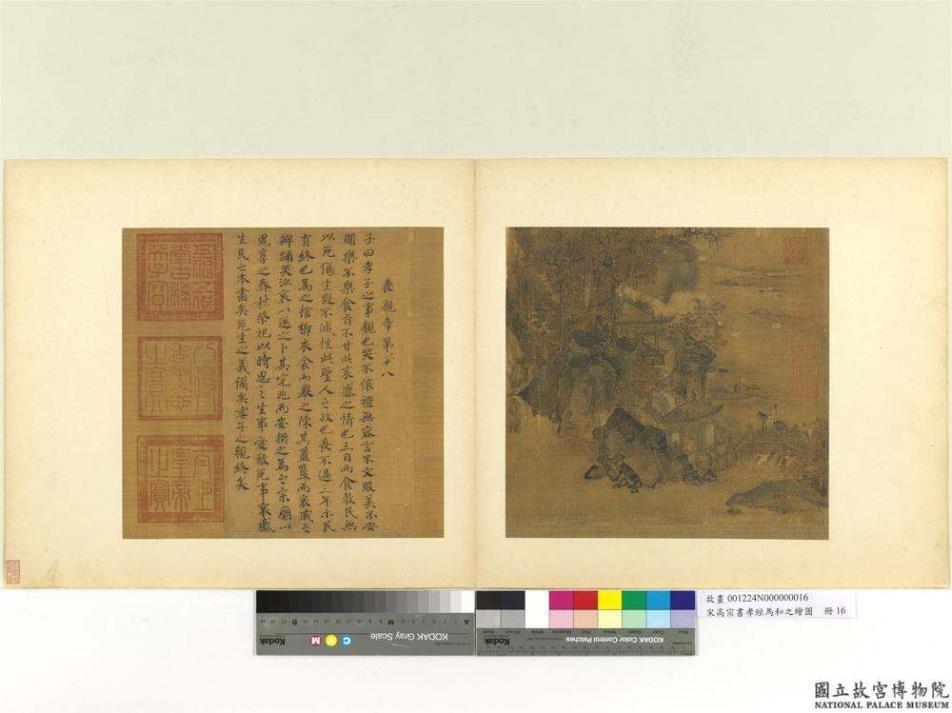 喪親章第十八
子曰孝子之事親也哭不偯禮無容言不文服美不安
聞樂不樂食旨不甘此哀慼之情也三日而食教民無
以死傷生毀不滅性此聖人之政也喪不過三年示民
有終也為之棺槨衣衾而舉之陳其簠簋而哀慼之
擗踊哭泣哀以送之卜其宅兆而安措之為之宗廟以
鬼享之春秋祭祀以時思之生事愛敬死事哀慼
生民之本盡矣死生之義備矣孝子之親終矣
八徵耄念之寶
太上皇帝之寶
KODAK Gray Scale
C Y M
Kodak
KODAK Color Control Patches
Kodak
故畫 001224N000000016
宋高宗書孝經馬和之繪圖 冊 16
國立故宮博物院
NATIONAL PALACE MUSEUM